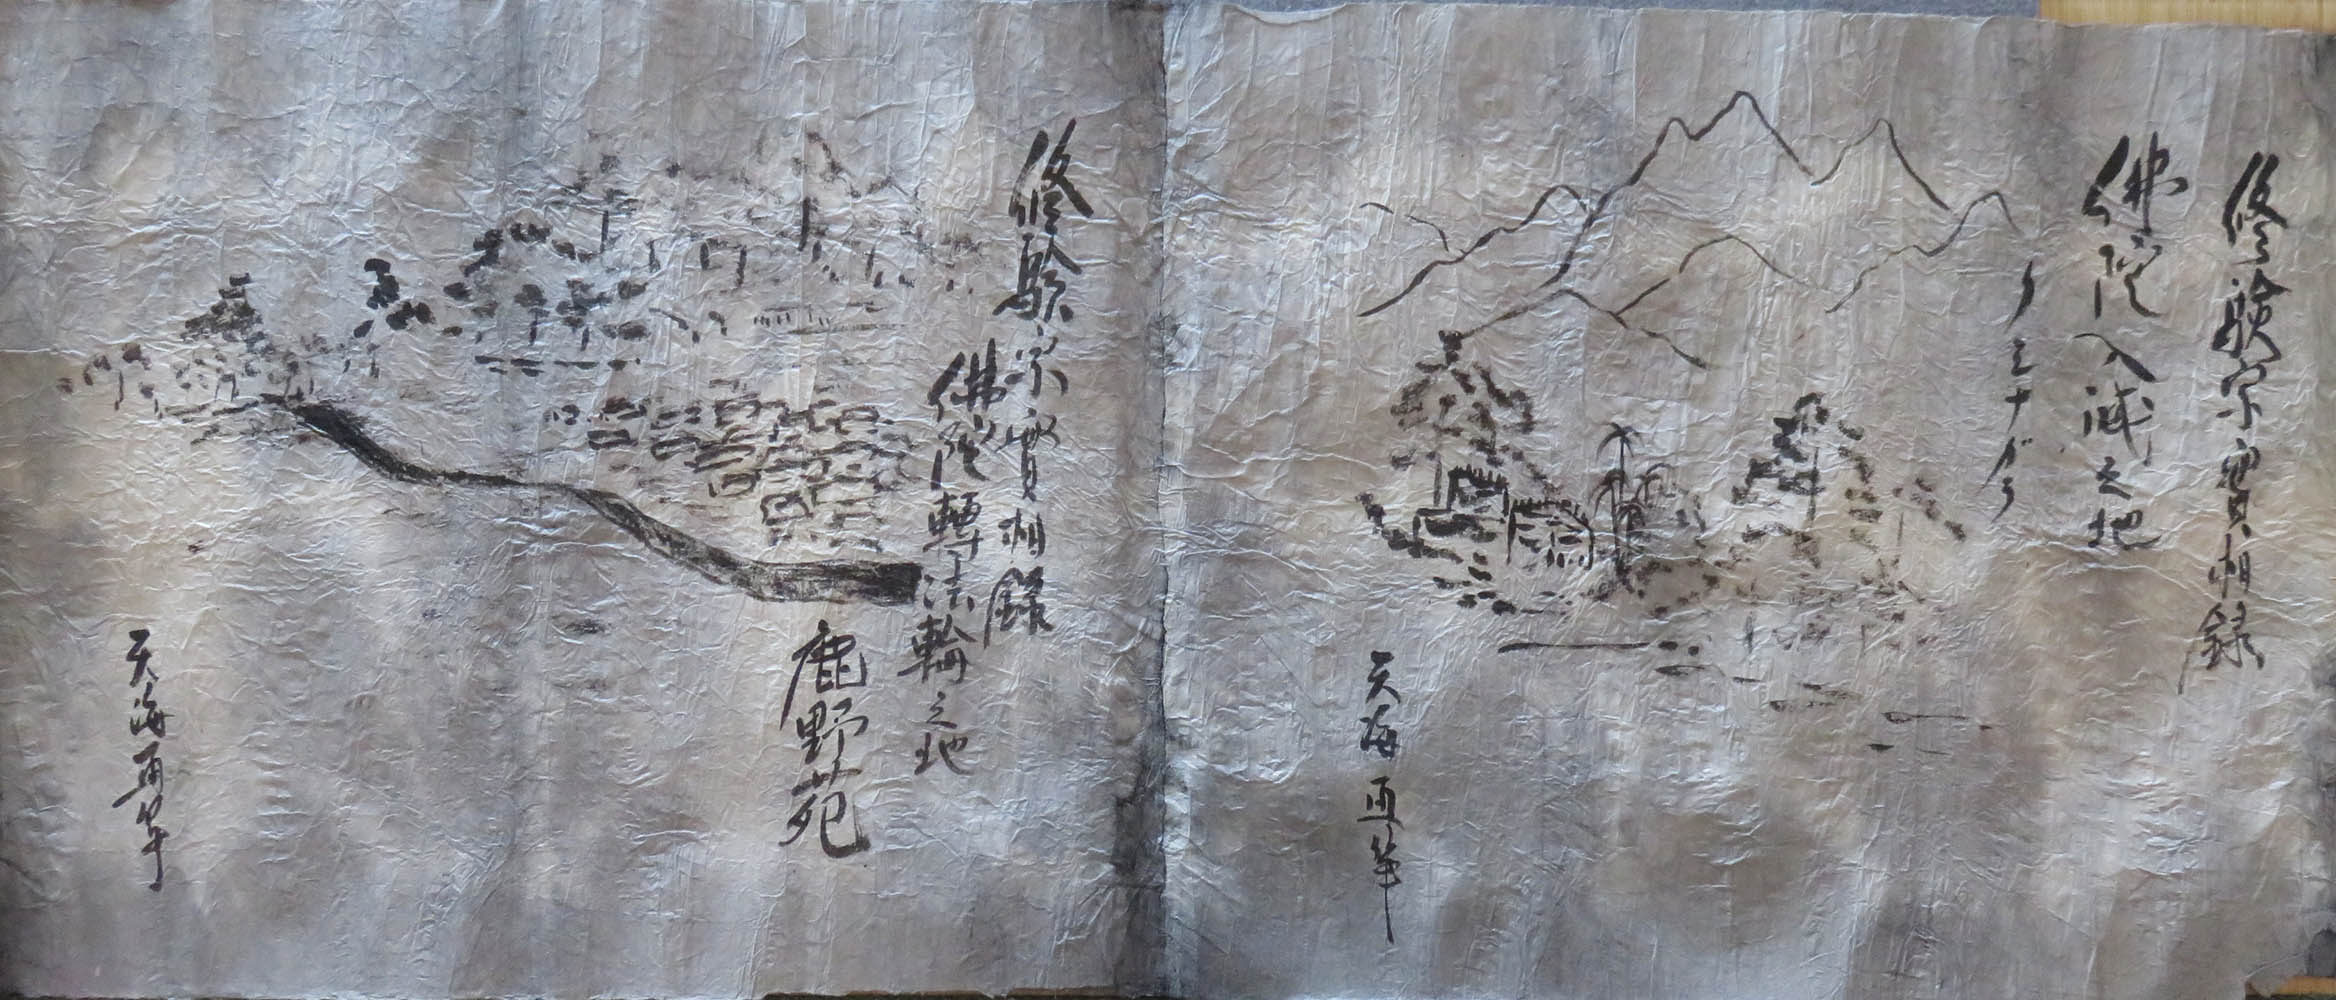 修験宗實相録
佛陀入滅之地
クシナガラ
天海再筆
修験宗實相録
佛陀轉法輪之地
鹿野苑
天海再筆